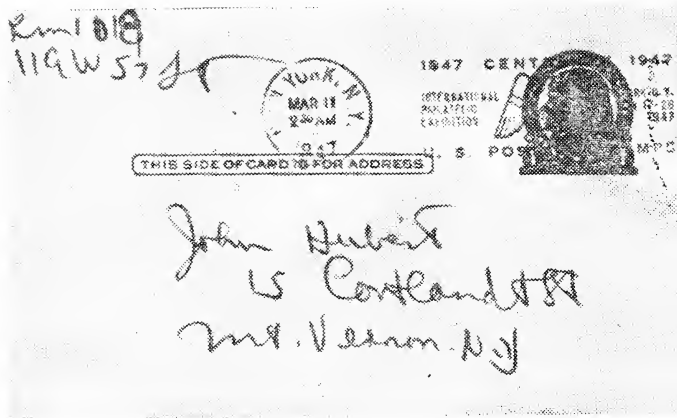 Rm 1018
119 W 57 St
YORK, N.Y.
MAR 11
2 30 AM
1947
1847 CENT 1947
INTERNATIONAL
PHILATELIC
EXHIBITION
U. S. POS
THIS SIDE OF CARD IS FOR ADDRESS
John Hubert
15 Cortlandt St
Mt. Vernon. N.Y